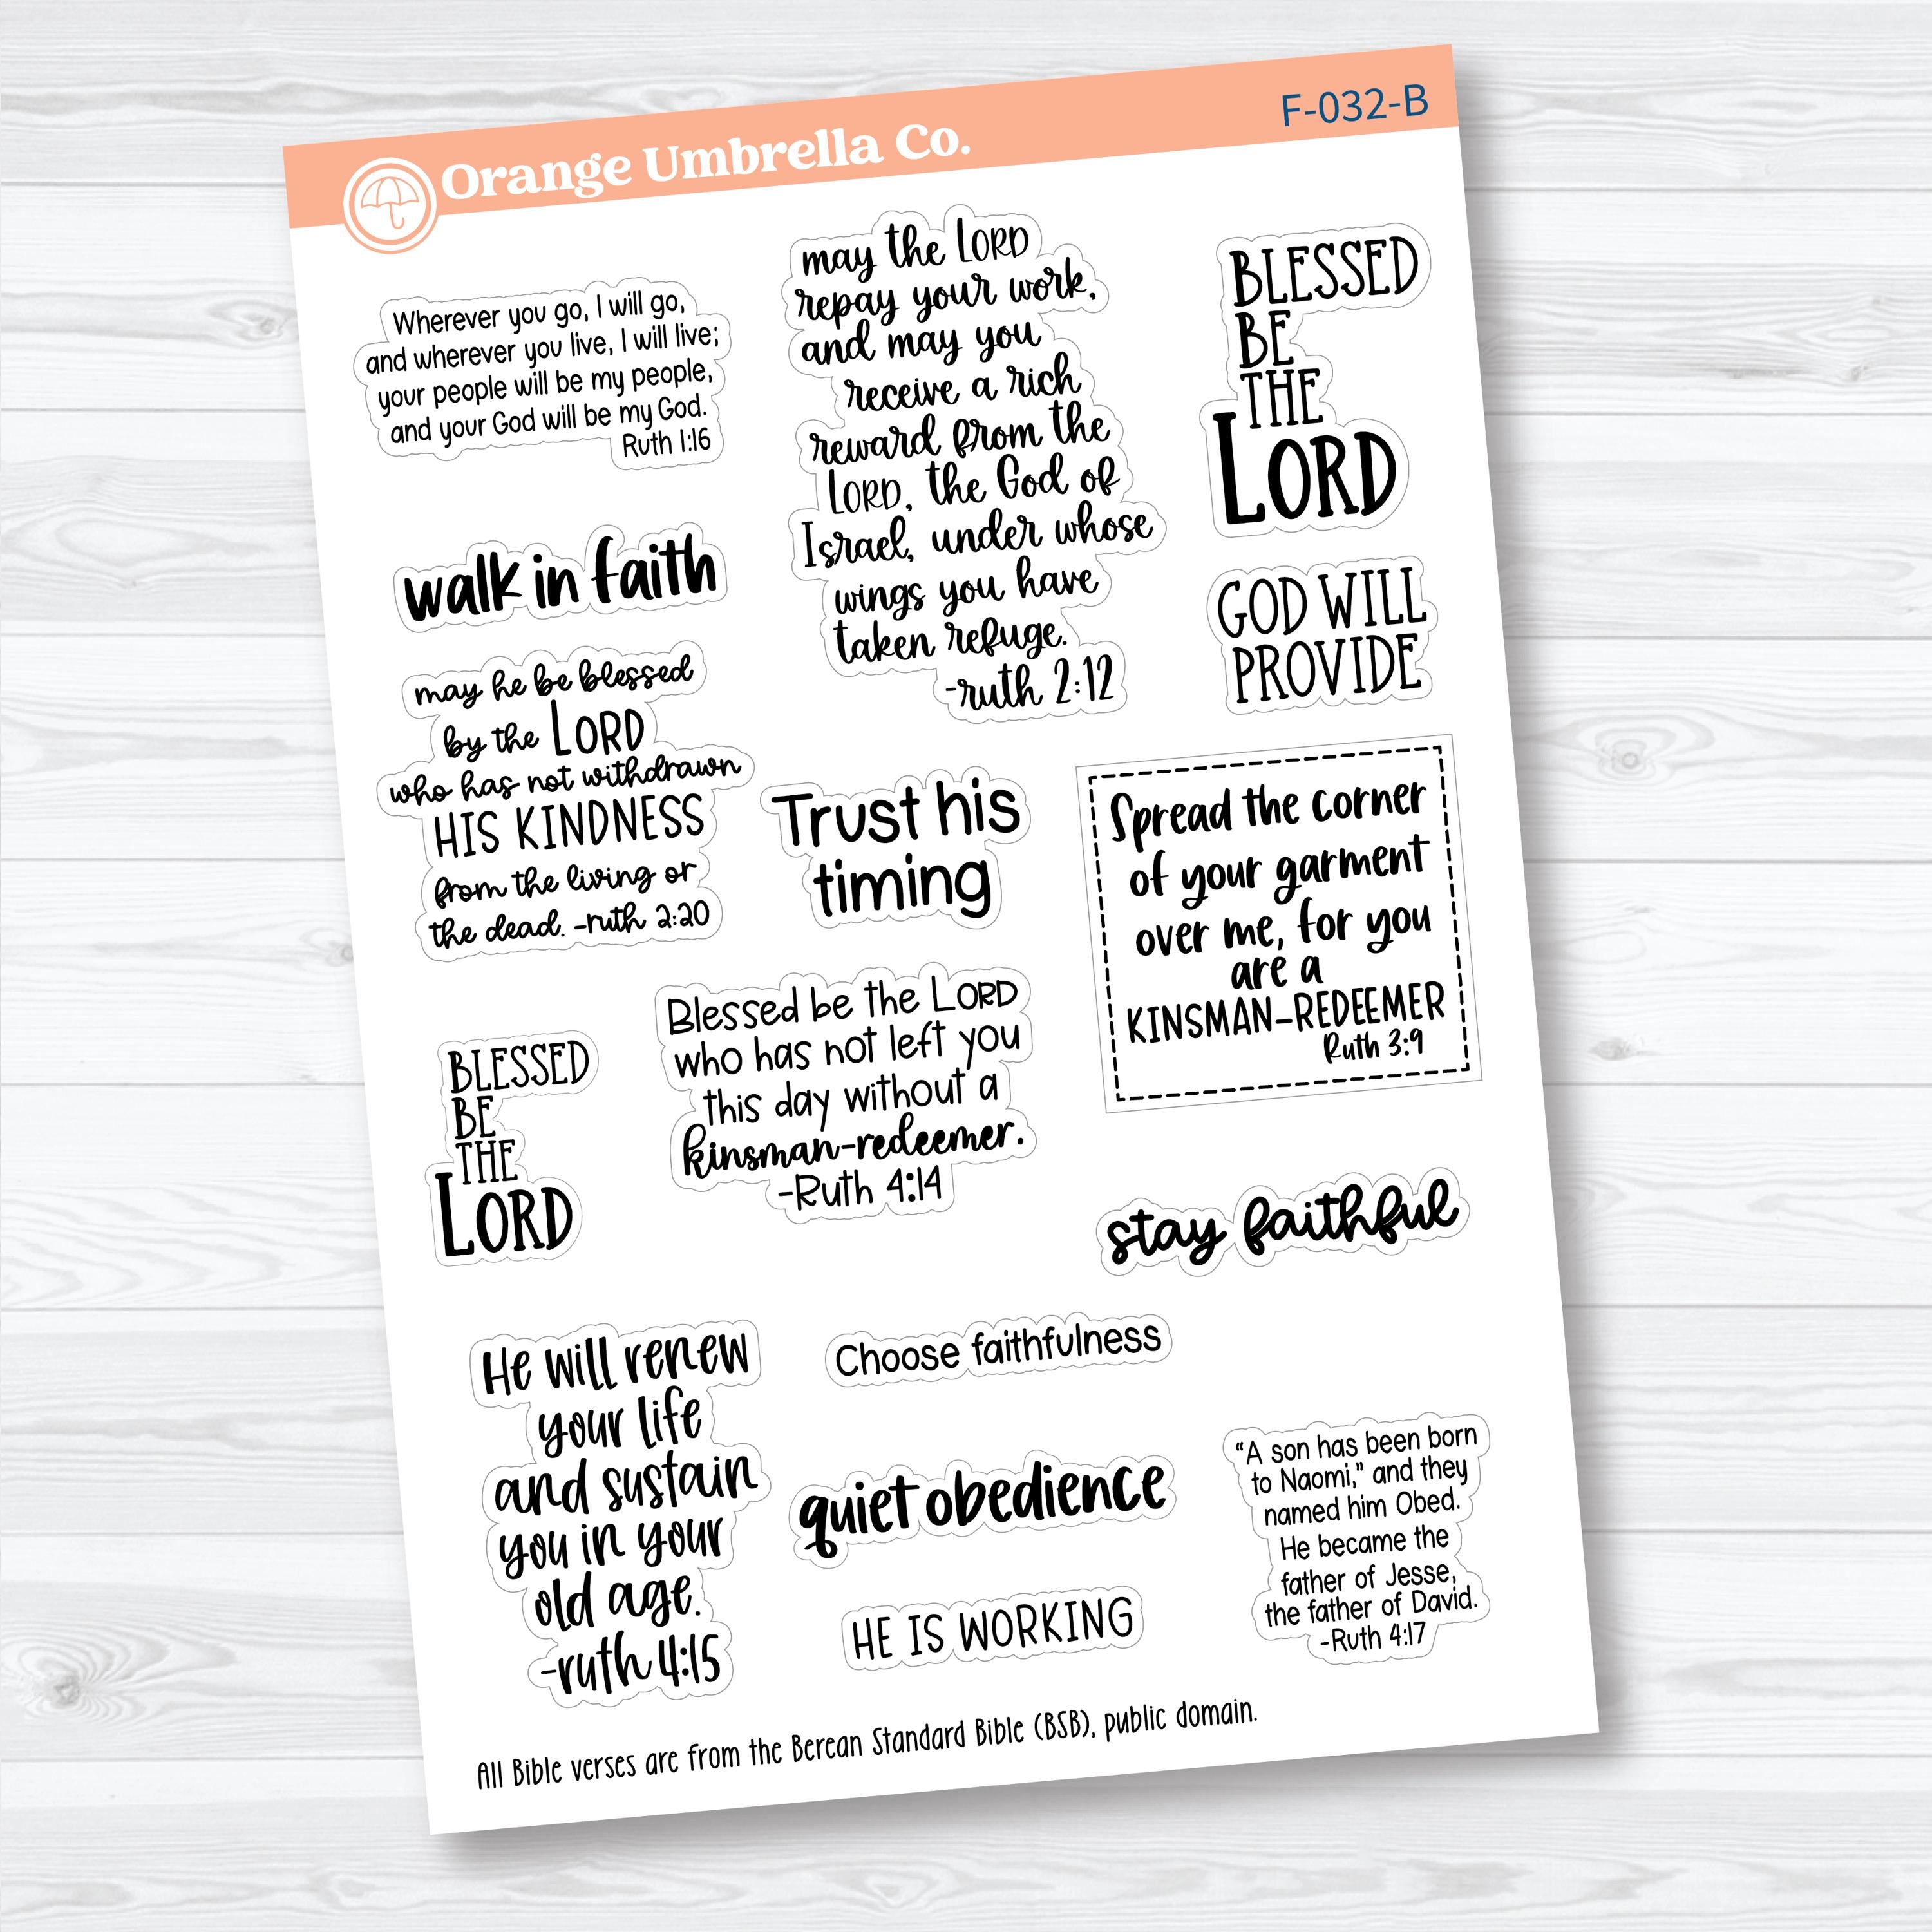 Orange Umbrella Co.
F-032-B
Wherever you go, I will go,
and wherever you live, I will live;
your people will be my people,
and your God will be my God.
Ruth 1:16
may the LORD
repay your work,
and may you
receive a rich
reward from the
LORD, the God of
Israel, under whose
wings you have
taken refuge.
-ruth 2:12
BLESSED
BE
THE
LORD
walk in faith
GOD WILL
PROVIDE
may he be blessed
by the LORD
who has not withdrawn
HIS KINDNESS
from the living or
the dead. -ruth 2:20
Trust his
timing
Spread the corner
of your garment
over me, for you
are a
KINSMAN-REDEEMER
Ruth 3:9
BLESSED
BE
THE
LORD
Blessed be the LORD
who has not left you
this day without a
kinsman-redeemer.
-Ruth 4:14
stay faithful
He will renew
your life
and sustain
you in your
old age.
-ruth 4:15
Choose faithfulness
quiet obedience
HE IS WORKING
“A son has been born
to Naomi,” and they
named him Obed.
He became the
father of Jesse,
the father of David.
-Ruth 4:17
All Bible verses are from the Berean Standard Bible (BSB), public domain.